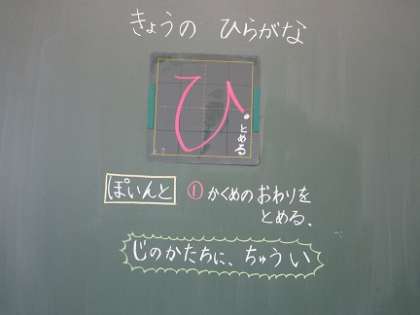 きょうの ひらがな
ひ
とめる
ぽいんと ①かくめのおわりを
とめる、
じのかたちに、ちゅうい